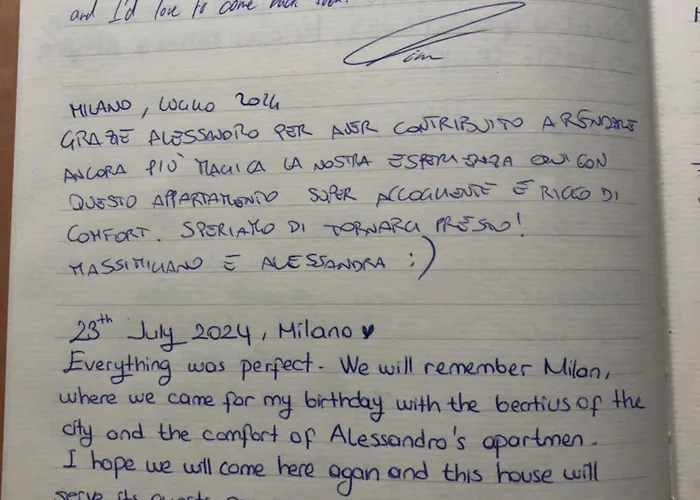 and I'd love to come back soon!
Tim
MILANO, LUGLIO 2024
GRAZIE ALESSANDRO PER AVER CONTRIBUITO A RENDERE
ANCORA PIÙ MAGICA LA NOSTRA ESPERIENZA QUI CON
QUESTO APPARTAMENTO SUPER ACCOGLIENTE E RICCO DI
COMFORT. SPERIAMO DI TORNARCI PRESTO!
MASSIMILIANO E ALESSANDRA :)
23th July 2024, Milano ♥
Everything was perfect. We will remember Milan,
where we came for my birthday with the beatius of the
city and the comfort of Alessandro's apartmen.
I hope we will come here again and this house will
serve its guests